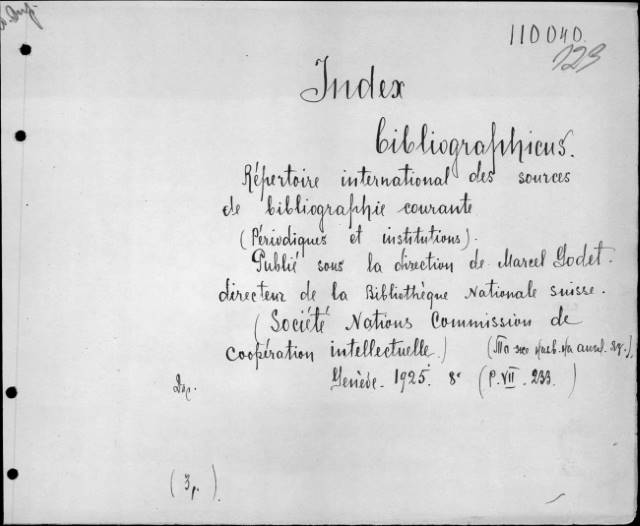 110040.
123
Index
bibliographicus.
Répertoire international des sources
de bibliographie courante
(Périodiques et institutions).
Publié sous la direction de Marcel Godet.
directeur de la Bibliothèque Nationale suisse.
(Société Nations Commission de
Coopération intellectuelle.) (То же назв. на англ. яз.),
Genève. 1925. 8° (p. VII. 233.)
(3 р.)